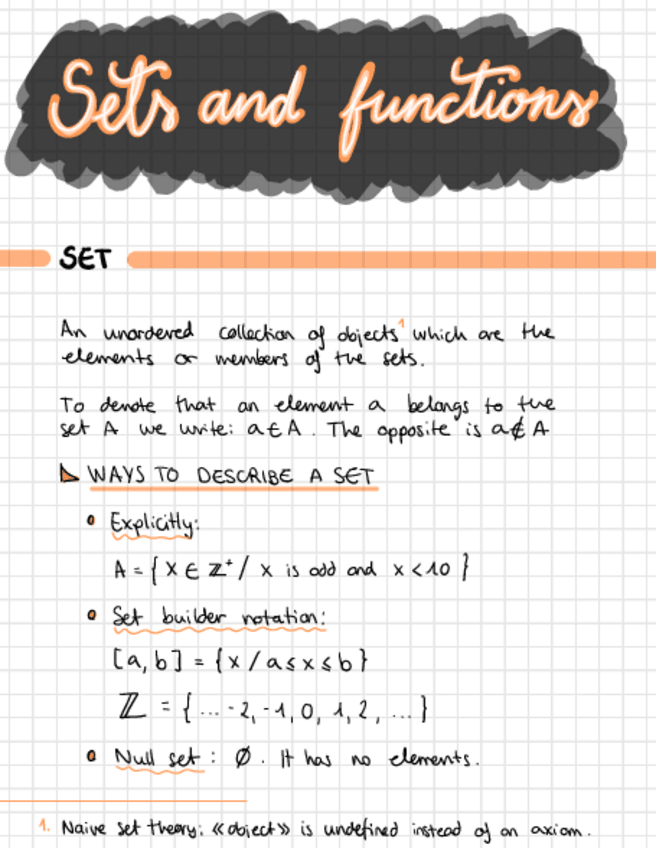 Sets and functions
SET
An unordered collection of objects¹ which are the
elements or members of the sets.
To denote that an element a belongs to the
set A we write: a ∈ A. The opposite is a ∉ A
WAYS TO DESCRIBE A SET
Explicitly:
A = { x ∈ ℤ⁺ / x is odd and x < 10 }
Set builder notation:
[a, b] = { x / a ≤ x ≤ b }
ℤ = { ... -2, -1, 0, 1, 2, ... }
Null set: ∅. It has no elements.
1. Naive set theory: «object» is undefined instead of an axiom.